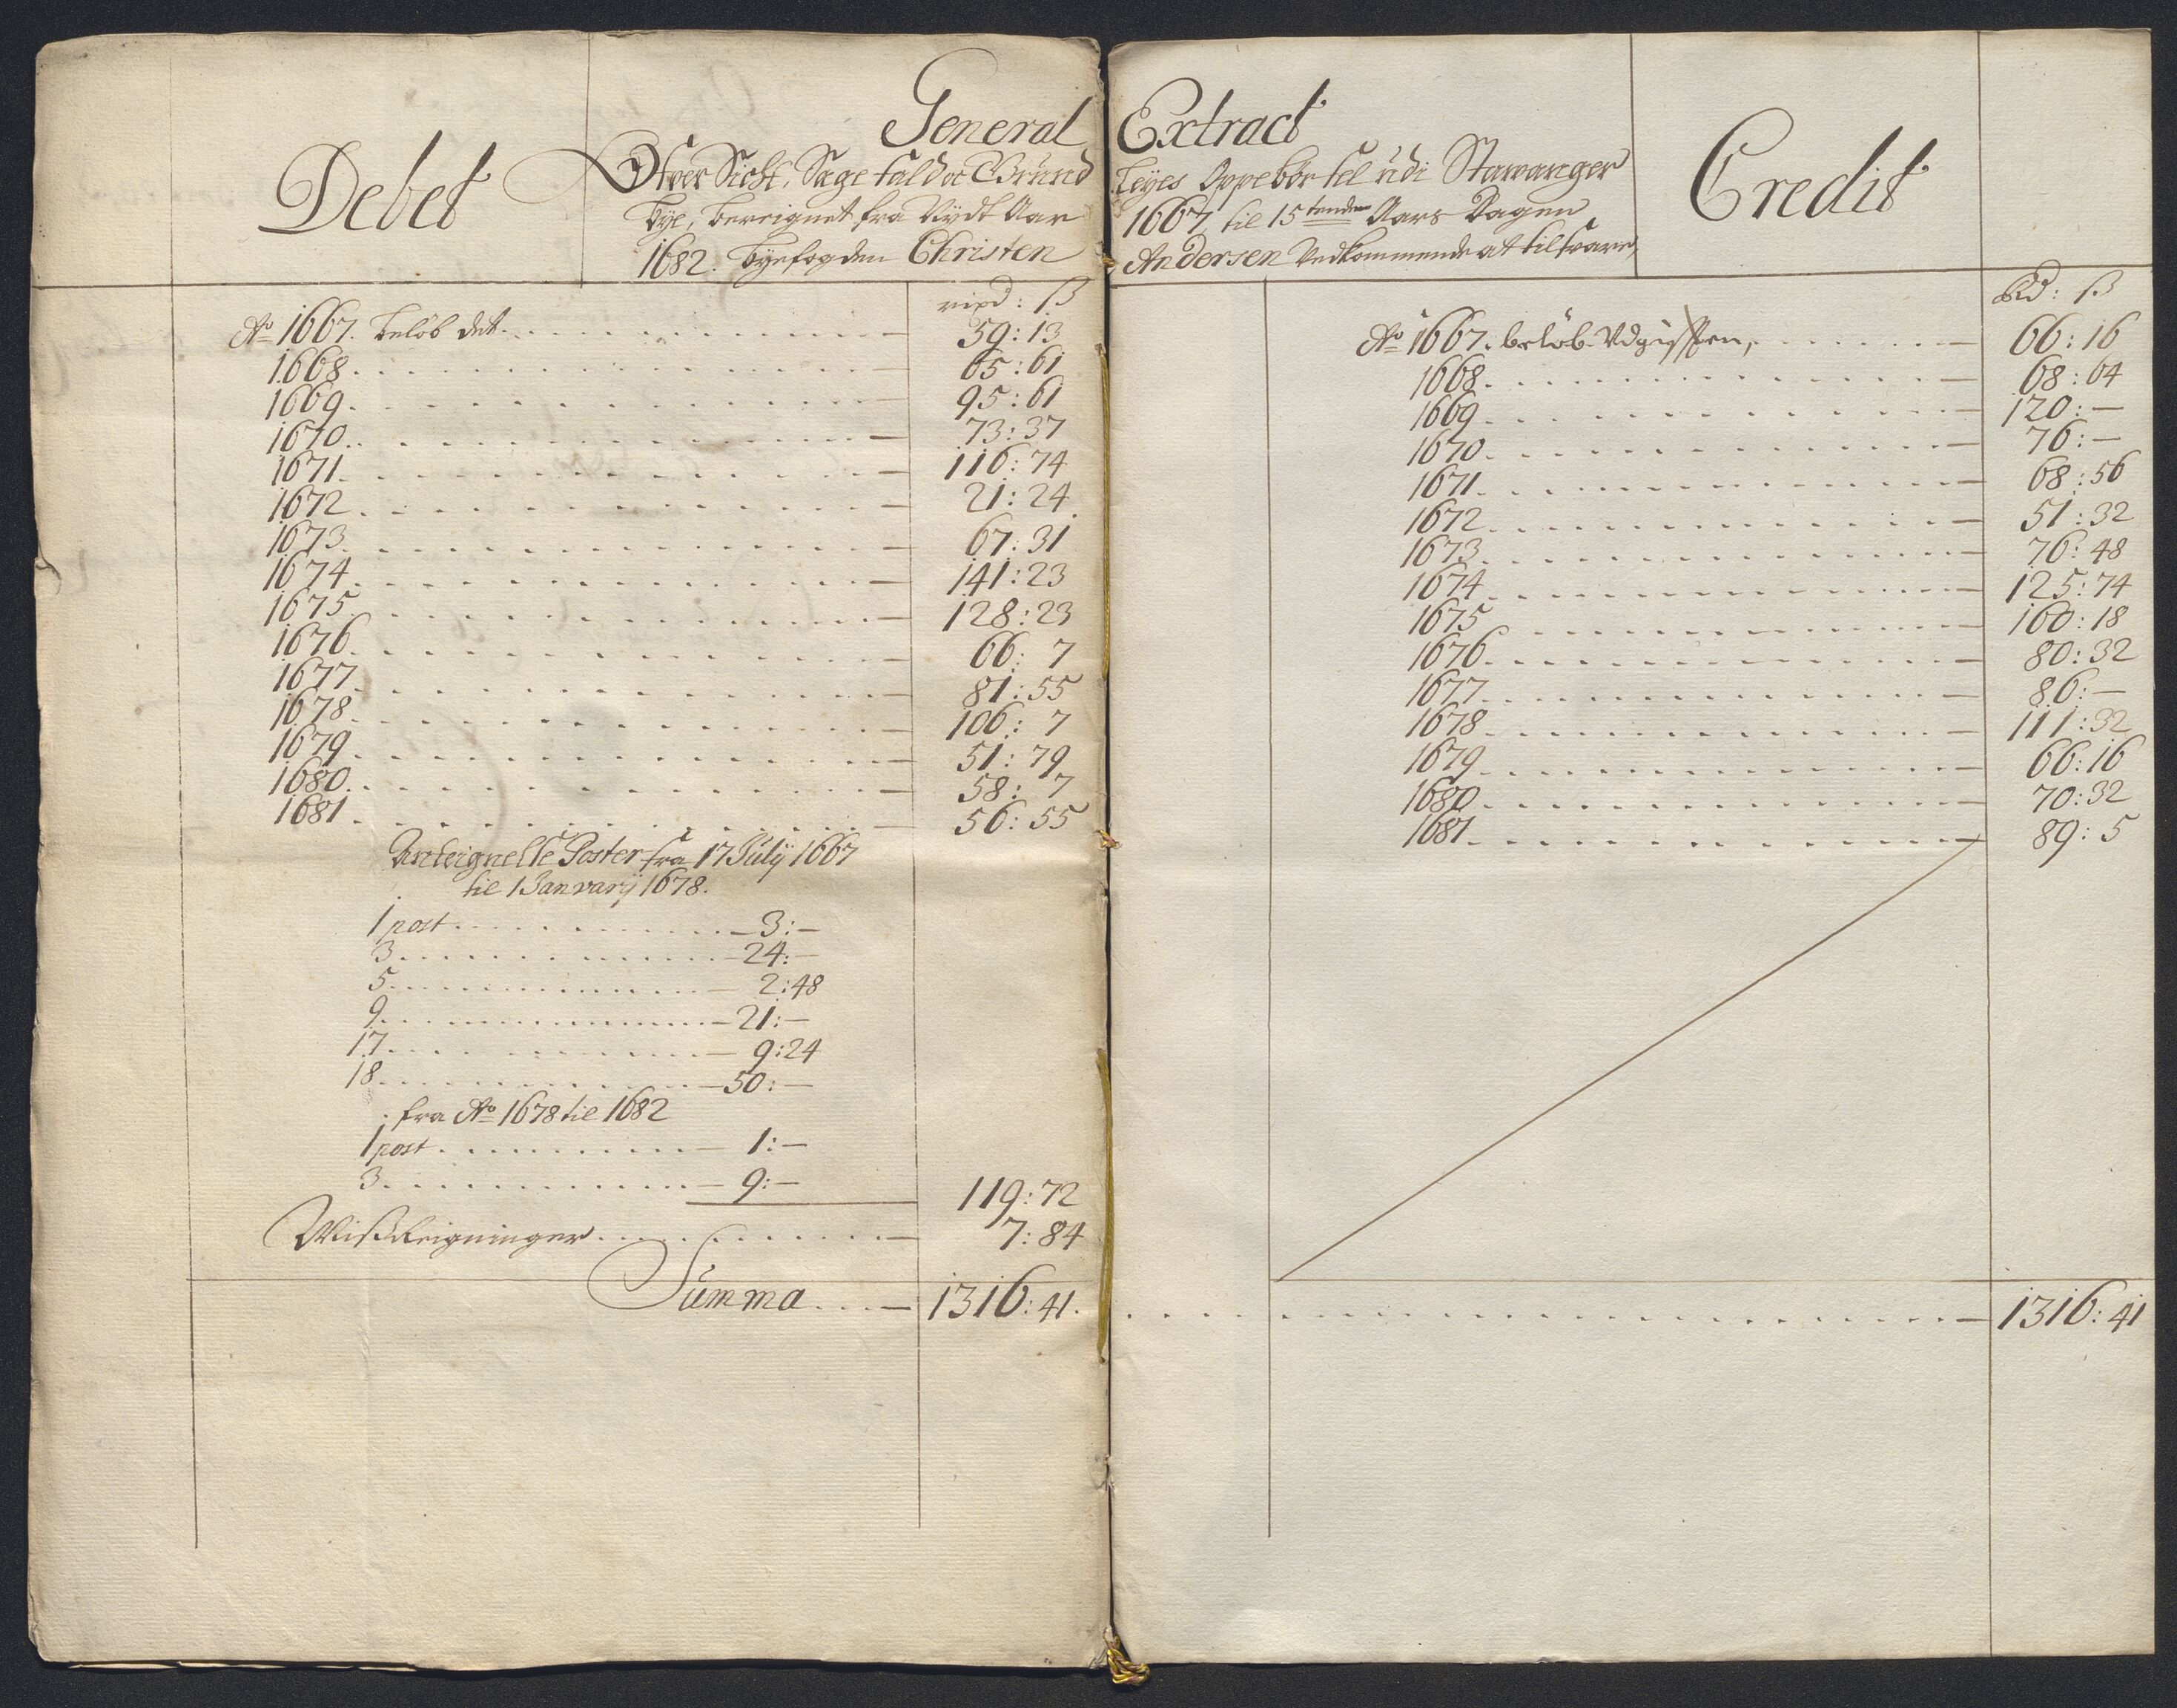 General Extract
Debet
Ofver Sicht, Sage fald oc Grund Leÿes Oppebørsel udi Stawanger
Bÿe, bereignet fra Nÿdt Aar 1667 til 15tende Aars Dagen
1682. Bÿefogden Christen Andersen Vedkommende at tilsvare,
Credit
rixd: ß
Ao 1667. beløb det 59:13
1668. 65:61
1669. 95:61
1670. 73:37
1671. 116:74
1672. 21:24
1673. 67:31
1674. 141:23
1675. 128:23
1676. 66: 7
1677. 81:55
1678. 106: 7
1679. 51:79
1680. 58: 7
1681. 56:55
Anteignelse Poster fra 17 Julÿ 1667
til 1 Januarÿ 1678.
1 post 3:—
3 24:—
5 2:48
9 21:—
17 9:24
18 50:—
fra Ao 1678 til 1682
1 post 1:—
3 9:—
119:72
Missreigninger 7:84
Summa 1316:41.
Rd: ß
Ao 1667. beløb Udgifften, 66:16
1668. 68:64
1669. 120:—
1670. 76:—
1671. 68:56
1672. 51:32
1673. 76:48
1674. 125:74
1675 160:18
1676. 80:32
1677. 86:—
1678. 111:32
1679. 66:16
1680. 70:32
1681. 89: 5
1316:41